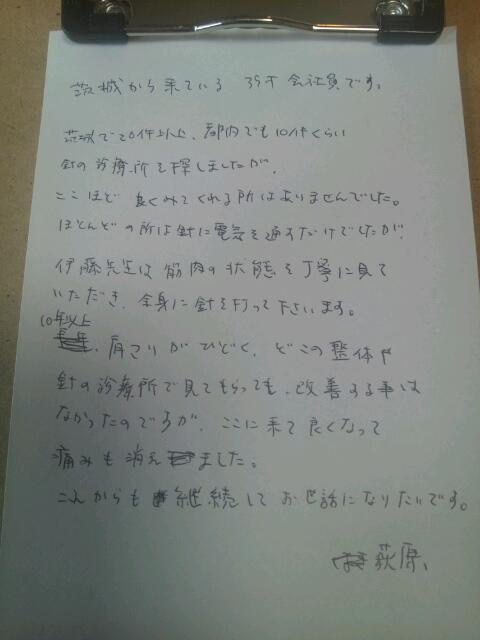 茨城から来ている 35才 会社員です。
茨城で20件以上、都内でも10件くらい
針の診療所を探しましたが、
ここほど良くみてくれる所はありませんでした。
ほとんどの所は針に電気を通すだけでしたが、
伊藤先生は筋肉の状態を丁寧に見て
いただき、全身に針を打って下さいます。
10年以上
、肩こりがひどく、どこの整体や
針の診療所で見てもらっても、改善する事は
なかったのですが、ここに来て良くなって
痛みも消えました。
これからも継続してお世話になりたいです。
荻原、